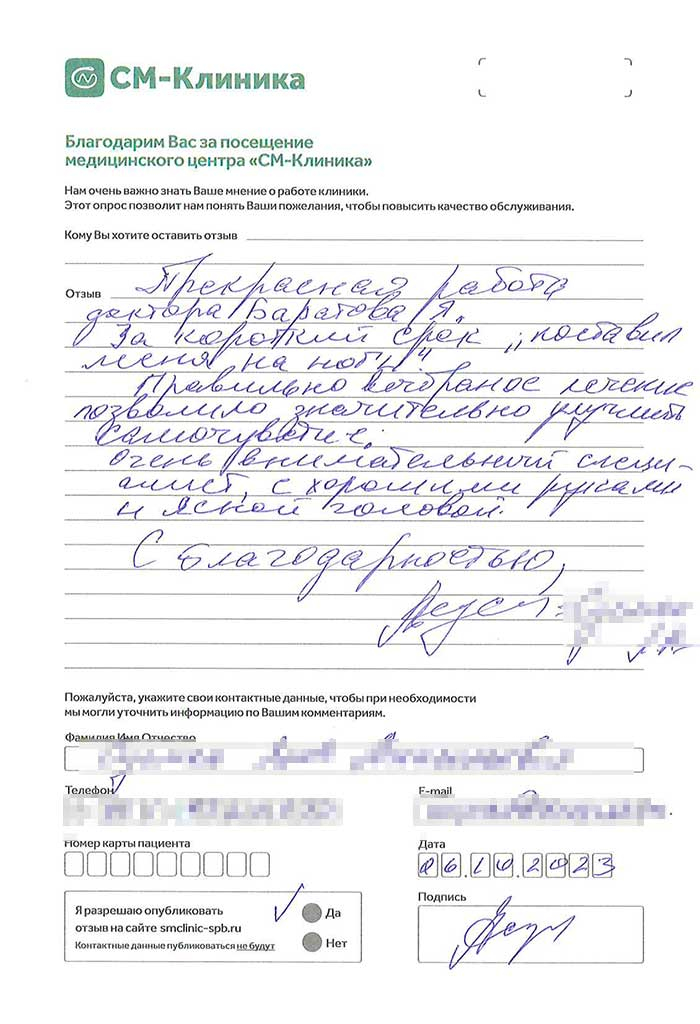 СМ-Клиника
Благодарим Вас за посещение
медицинского центра «СМ-Клиника»
Нам очень важно знать Ваше мнение о работе клиники.
Этот опрос позволит нам понять Ваши пожелания, чтобы повысить качество обслуживания.
Кому Вы хотите оставить отзыв
Отзыв Прекрасная работа
доктора Баратова Я.
За короткий срок „поставил
меня на ноги"
Правильно лечение
позволило значительно улучшить
самочувствие.
Очень внимательный специ-
алист, с хорошими руками
и ясной головой.
С благодарностью,
Пожалуйста, укажите свои контактные данные, чтобы при необходимости
мы могли уточнить информацию по Вашим комментариям.
Фамилия Имя Отчество
Телефон
E-mail
Номер карты пациента
Дата
06.10.2023
Я разрешаю опубликовать
отзыв на сайте smclinic-spb.ru
Контактные данные публиковаться не будут
Да
Нет
Подпись